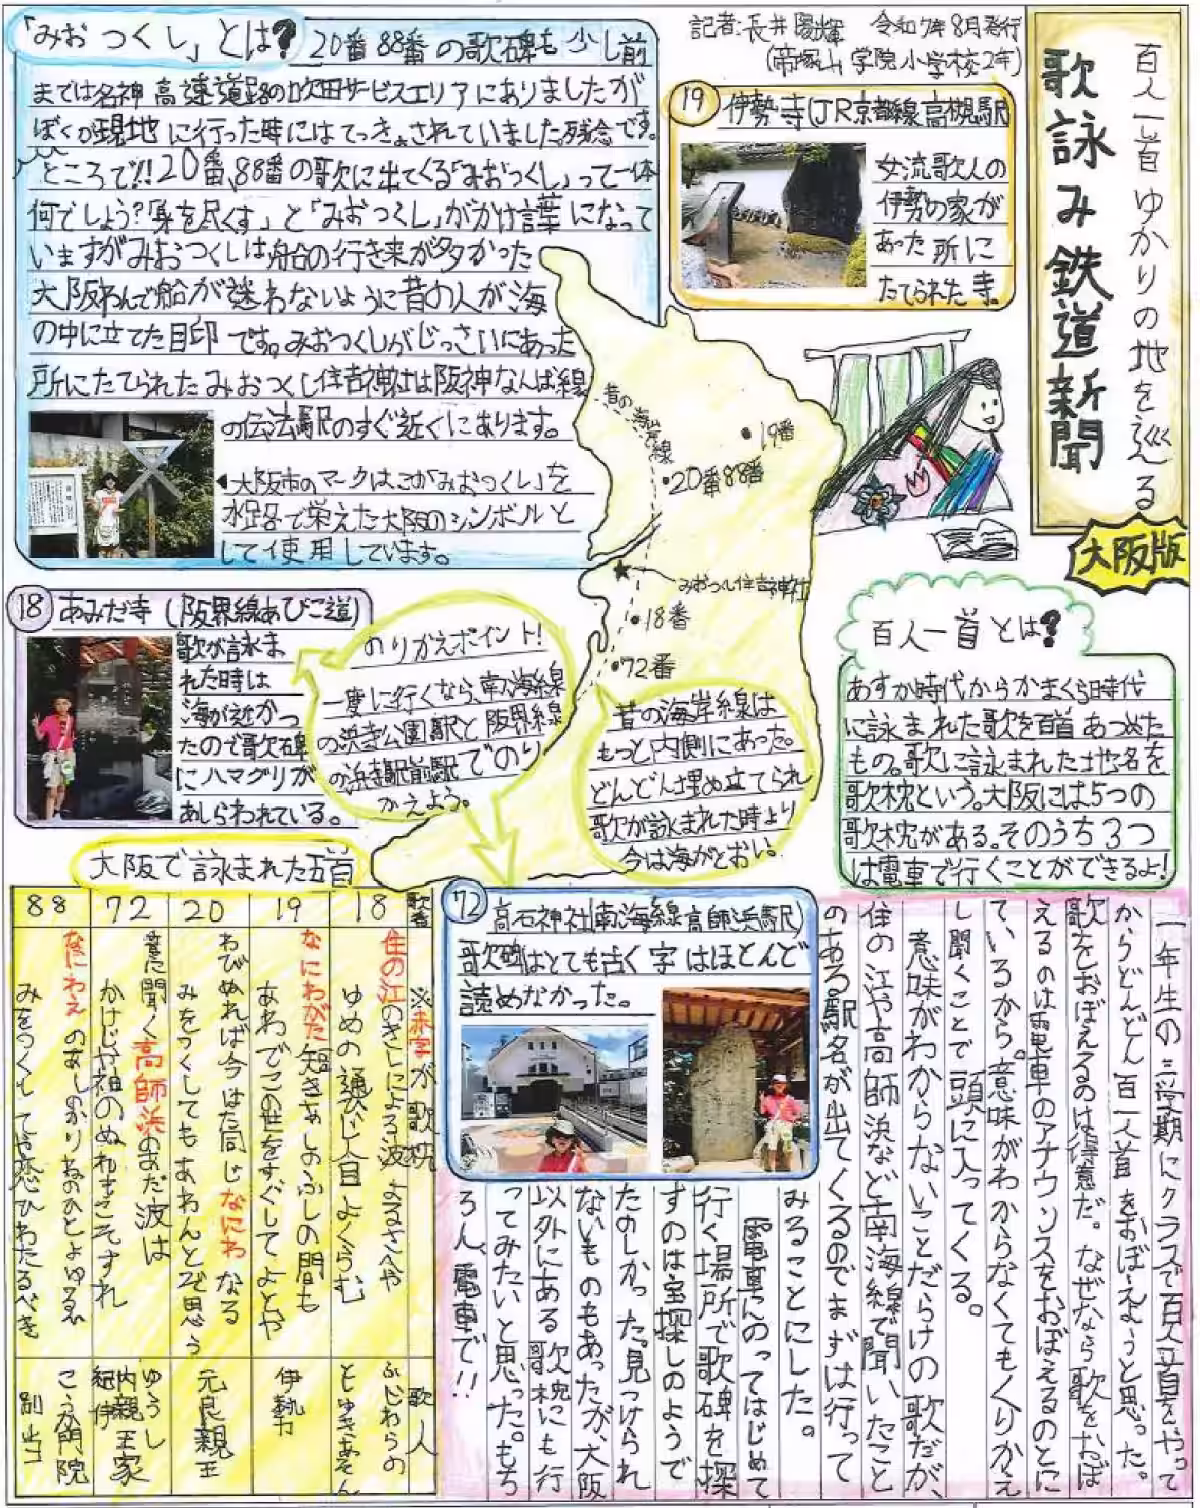 百人一首ゆかりの地を巡る
歌詠み鉄道新聞
大阪版
記者:長井陽輝 令和7年8月発行
(帝塚山学院小学校2年)
「みおつくし」とは?
20番88番の歌碑も少し前
までは名神高速道路の吹田サービスエリアにありましたが
ぼくが現地に行った時にはてっきょされていました。残念です。
ところで!!20番、88番の歌に出てくる「みおつくし」って一体
何でしょう?「身を尽くす」と「みおつくし」がかけ言葉になって
いますがみおつくしは船の行き来が多かった
大阪わんで船が迷わないように昔の人が海
の中に立てた目印です。みおつくしがじっさいにあった
所にたてられたみおつくし住吉神社は阪神なんば線
の伝法駅のすぐ近くにあります。
◀大阪市のマークはこの「みおつくし」を
水路で栄えた大阪のシンボルと
して使用しています。
19 伊勢寺(JR京都線高槻駅)
女流歌人の
伊勢の家が
あった所に
たてられた寺。
昔の海岸線
19番
20番88番
みおつくし住吉神社
18番
72番
18 あみだ寺(阪界線あびこ道)
歌が詠ま
れた時は
海が近かっ
たので歌碑
にハマグリが
あしらわれている。
のりかえポイント!
一度に行くなら、南海線
の浜寺公園駅と阪界線
の浜寺駅前駅でのり
かえよう。
昔の海岸線は
もっと内側にあった。
どんどん埋め立てられ
歌が詠まれた時より
今は海がとおい。
百人一首とは?
あすか時代からかまくら時代
に詠まれた歌を百首あつめた
もの。歌に詠まれた地名を
歌枕という。大阪には5つの
歌枕がある。そのうち3つ
は電車で行くことができるよ!
72 高石神社(南海線高師浜駅)
歌碑はとても古く字はほとんど
読めなかった。
大阪で詠まれた五首
歌番 ※赤字が歌枕 歌人
18 住の江のきしによる波よるさへや
ゆめの通ひじ人目よくらむ
ふじわらの
としゆきあそん
19 なにわがた短きあしのふしの間も
あわでこの世をすぐしてよとや
伊勢
20 わびぬれば今はた同じなにわなる
みをつくしてもあわんとぞ思う
元良親王
72 音に聞く高師浜のあだ波は
かけじや袖のぬれもこそすれ
ゆうし
内親王家
紀伊
88 なにわえのあしのかりねのひとよゆゑ
みをつくしてや恋ひわたるべき
こうか門院
別当
一年生の三学期にクラスで百人一首をやって
からどんどん百人一首をおぼえようと思った。
歌をおぼえるのは得意だ。なぜなら歌をおぼ
えるのは電車のアナウンスをおぼえるのとに
ているから。意味がわからなくてもくりかえ
し聞くことで頭に入ってくる。
意味がわからないことだらけの歌だが、
住の江や高師浜など南海線で聞いたこと
のある駅名が出てくるのでまずは行って
みることにした。
電車にのってはじめて
行く場所で歌碑を探
すのは宝探しのようで
たのしかった。見つけられ
ないものもあったが、大阪
以外にある歌枕にも行
ってみたいと思った。もち
ろん、電車で!!